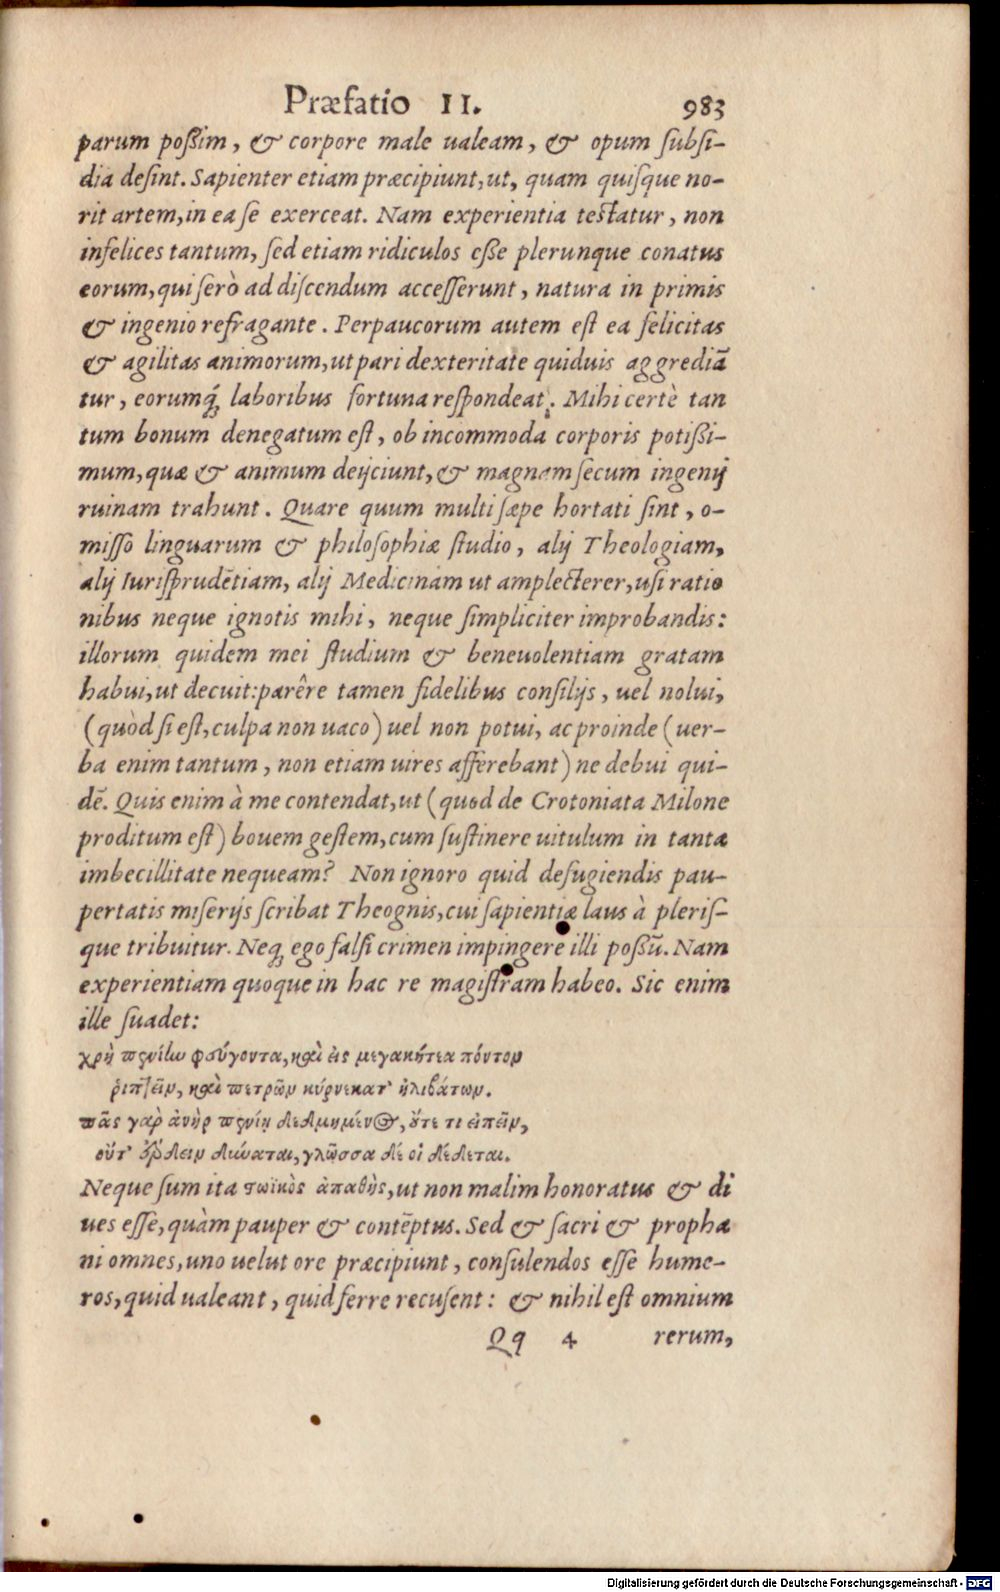 Præfatio II. 983
parum poßim, & corpore male ualeam, & opum subsi-
dia desint. Sapienter etiam præcipiunt, ut, quam quisque no-
rit artem, in ea se exerceat. Nam experientia testatur, non
infelices tantum, sed etiam ridiculos esse plerunque conatus
eorum, qui serò ad discendum accesserunt, natura in primis
& ingenio refragante. Perpaucorum autem est ea felicitas
& agilitas animorum, ut pari dexteritate quiduis aggrediā
tur, eorumq́; laboribus fortuna respondeat. Mihi certè tan
tum bonum denegatum est, ob incommoda corporis potißi-
mum, quæ & animum deijciunt, & magnam secum ingenij
ruinam trahunt. Quare quum multi sæpe hortati sint, o-
misso linguarum & philosophiæ studio, alij Theologiam,
alij Iurisprudētiam, alij Medicinam ut amplecterer, usi ratio
nibus neque ignotis mihi, neque simpliciter improbandis:
illorum quidem mei studium & beneuolentiam gratam
habui, ut decuit: parêre tamen fidelibus consilijs, uel nolui,
(quòd si est, culpa non uaco) uel non potui, ac proinde (uer-
ba enim tantum, non etiam uires afferebant) ne debui qui-
dē. Quis enim à me contendat, ut (quod de Crotoniata Milone
proditum est) bouem gestem, cum sustinere uitulum in tanta
imbecillitate nequeam? Non ignoro quid defugiendis pau-
pertatis miserijs scribat Theognis, cui sapientiæ laus à pleris-
que tribuitur. Neq; ego falsi crimen impingere illi possū. Nam
experientiam quoque in hac re magistram habeo. Sic enim
ille suadet:
χρὴ πενίην φεύγοντα, καὶ ἐις μεγακήτεα πόντον
ῥιπτεῖν, καὶ πετρῶν κύρνε κατ' ἠλιβάτων.
πᾶς γὰρ ἀνὴρ πενίῃ δεδμημένος, ὄτε τι ἐιπεῖν,
οὔτ' ἔρδειν δύναται, γλῶσσα δέ οἱ δέδεται.
Neque sum ita στωϊκὸς ἀπαθὴς, ut non malim honoratus & di
ues esse, quàm pauper & contēptus. Sed & sacri & propha
ni omnes, uno uelut ore præcipiunt, consulendos esse hume-
ros, quid ualeant, quid ferre recusent: & nihil est omnium
Qq 4 rerum,
Digitalisierung gefördert durch die Deutsche Forschungsgemeinschaft - DFG